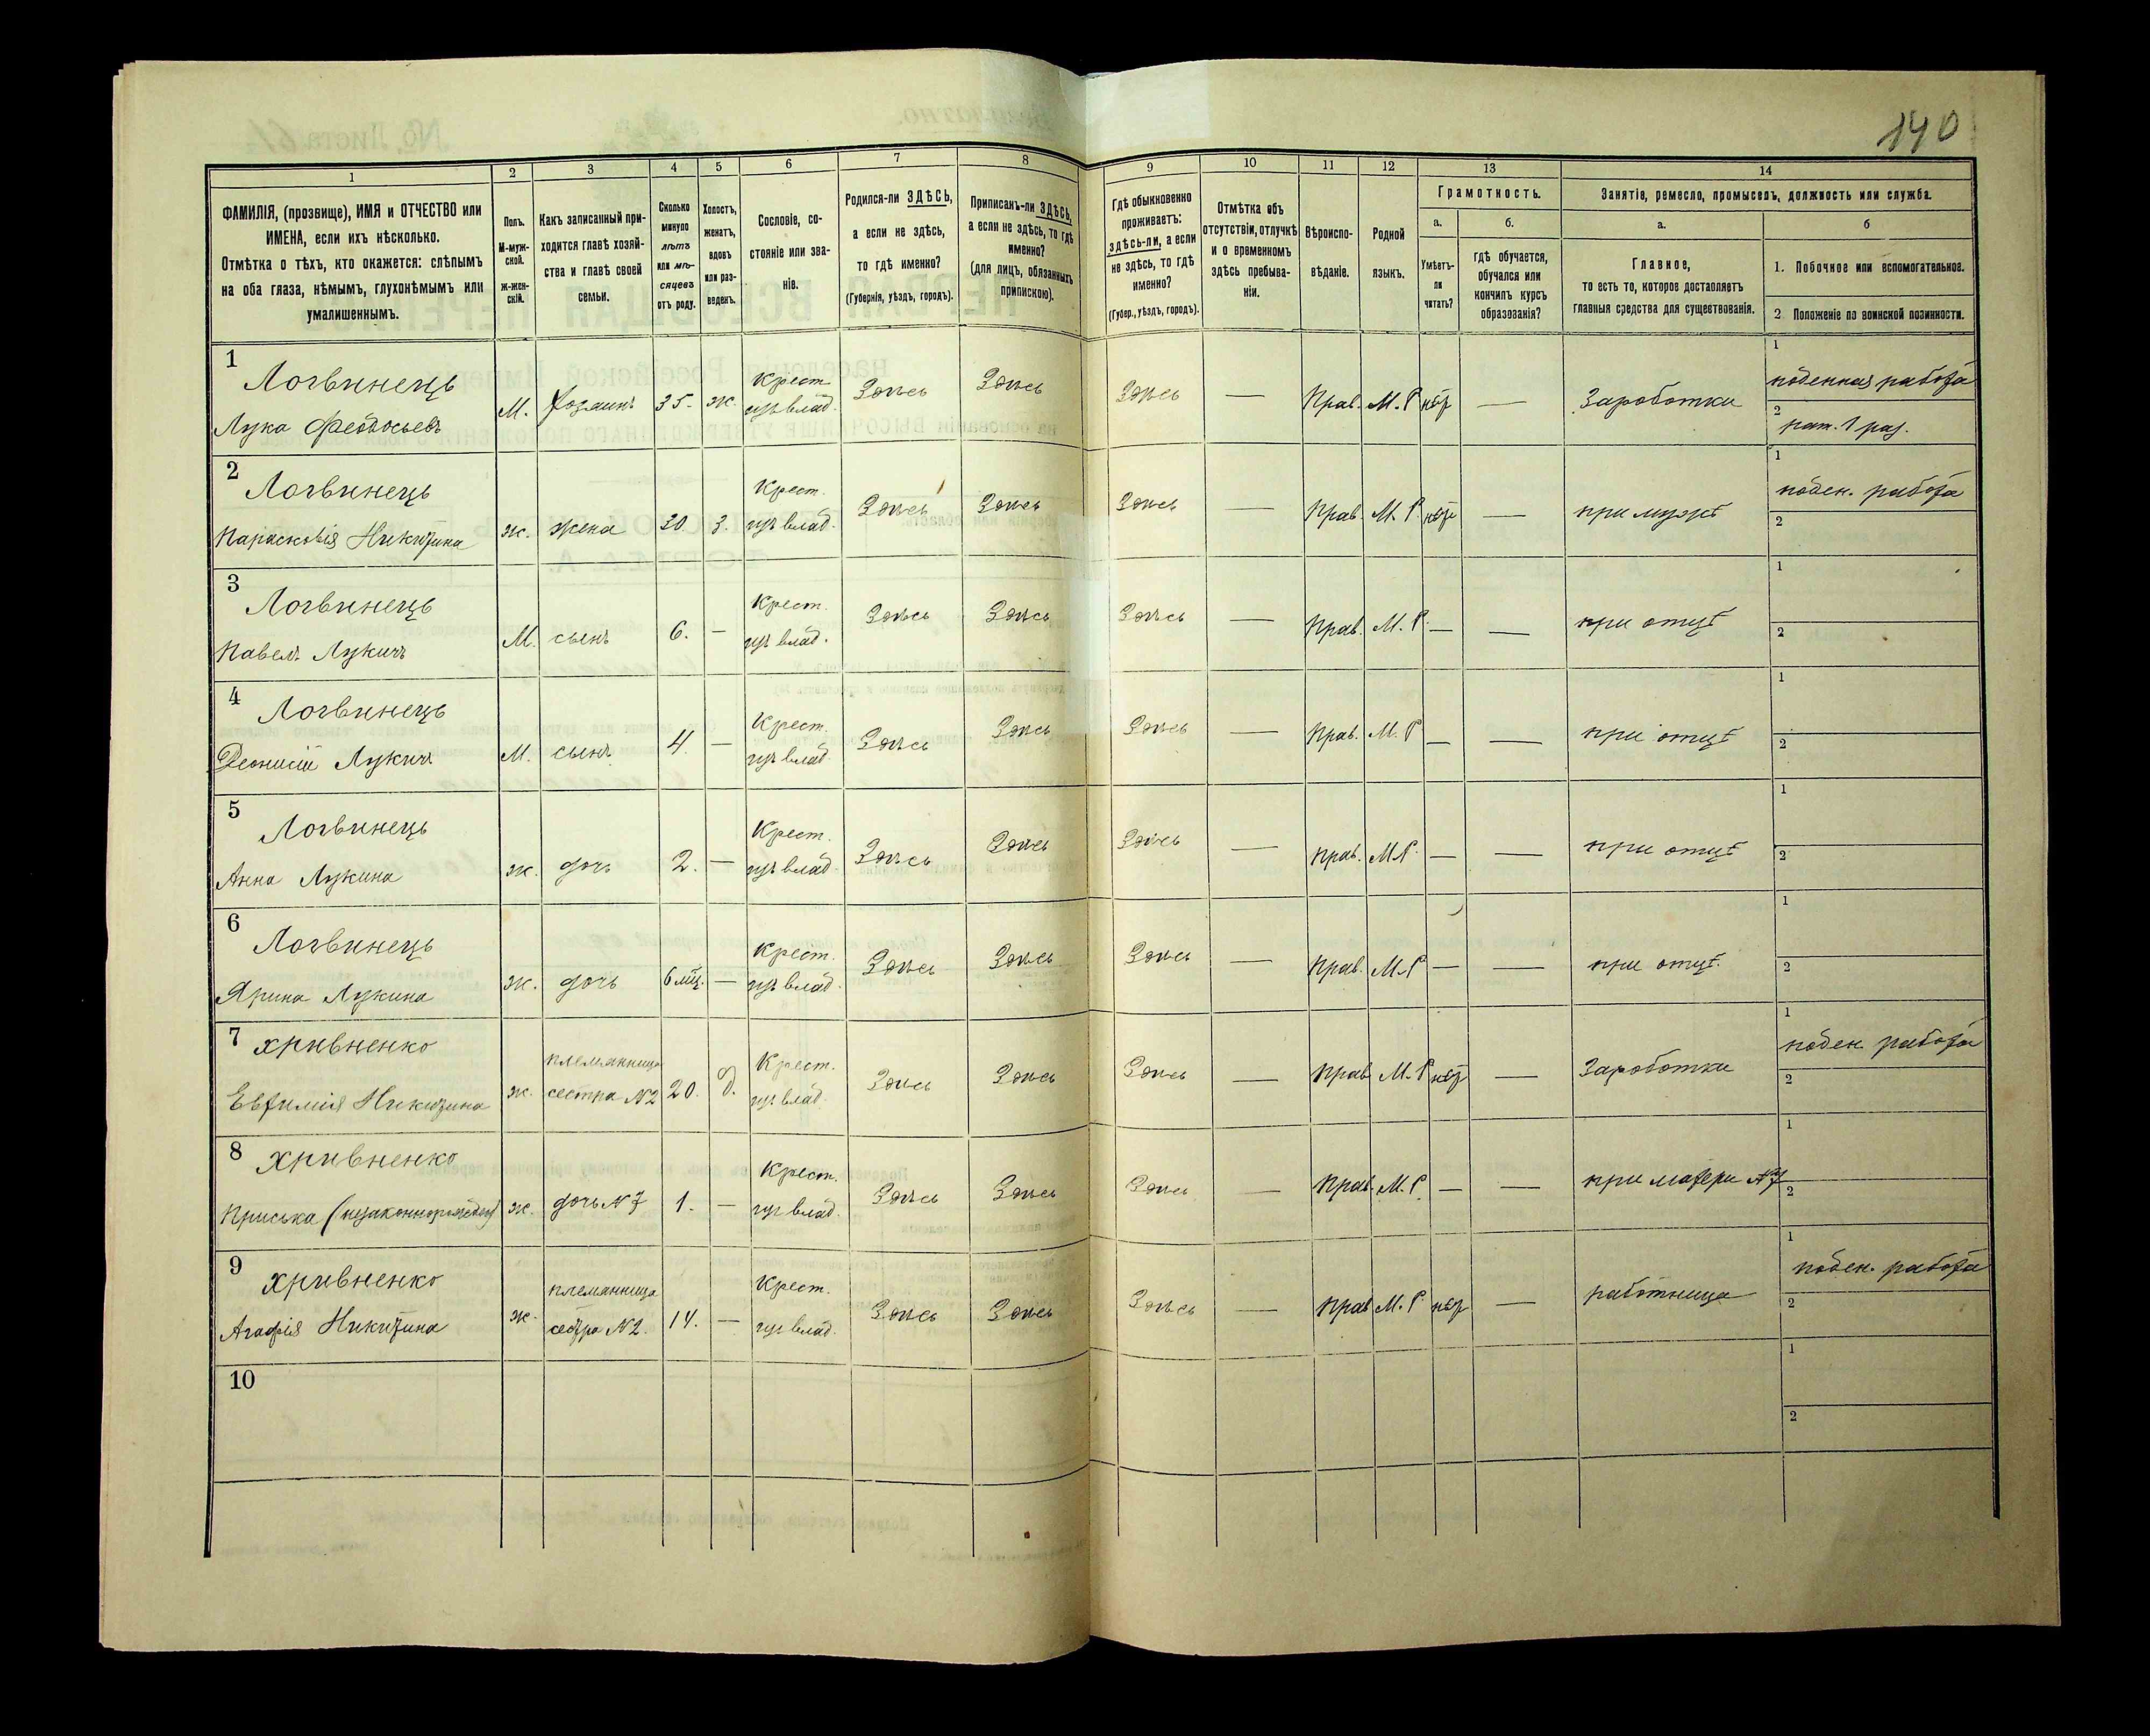 140
1
2
3
4
5
6
7
8
9
10
11
12
13
14
ФАМИЛІЯ, (прозвище), ИМЯ и ОТЧЕСТВО или
ИМЕНА, если ихъ нѣсколько.
Отмѣтка о тѣхъ, кто окажется: слѣпымъ
на оба глаза, нѣмымъ, глухонѣмымъ или
умалишеннымъ.
Полъ.
М-муж-
ской.
ж-жен-
скій.
Какъ записанный при-
ходится главѣ хозяй-
ства и главѣ своей
семьи.
Сколько
минуло
лѣтъ
или мѣ-
сяцевъ
отъ роду.
Холостъ,
женатъ,
вдовъ
или раз-
веденъ.
Сословіе, со-
стояніе или зва-
ніе.
Родился-ли ЗДѢСЬ,
а если не здѣсь,
то гдѣ именно?
(Губернія, уѣздъ, городъ).
Приписанъ-ли ЗДѢСЬ,
а если не здѣсь, то гдѣ
именно?
(для лицъ, обязанныхъ
припискою).
Гдѣ обыкновенно
проживаетъ:
здѣсь-ли, а если
не здѣсь, то гдѣ
именно?
(Губер., уѣздъ, городъ).
Отмѣтка объ
отсутствіи, отлучкѣ
и о временномъ
здѣсь пребыва-
ніи.
Вѣроиспо-
вѣданіе.
Родной
языкъ.
Грамотность.
а.
Умѣетъ-
ли
читать?
б.
гдѣ обучается,
обучался или
кончилъ курсъ
образованія?
Занятіе, ремесло, промыселъ, должность или служба.
а.
Главное,
то есть то, которое доставляетъ
главныя средства для существованія.
б
1. Побочное или вспомогательное.
2 Положеніе по воинской повинности.
1
Логвинець
Лука Феодосьевъ
М. хозяинъ 35. ж. Крест. изъ влад. Здѣсь Здѣсь Здѣсь — Прав. М. Р нѣт — Зароботки
1 поденная работа
2 рат. 1 раз.
2
Логвинець
Парасковія Никитина
ж. жена 30 з. Крест. изъ влад. Здѣсь Здѣсь Здѣсь — Прав. М. Р. нѣт — при мужѣ
1 поден. работа
2
3
Логвинець
Павелъ Лукичъ
М. сынъ 6. — Крест. изъ влад. Здѣсь Здѣсь Здѣсь — Прав. М. Р. — — при отцѣ
1
2
4
Логвинець
Деонисій Лукичъ
М. сынъ 4. — Крест. изъ влад. Здѣсь Здѣсь Здѣсь — Прав. М. Р — — при отцѣ
1
2
5
Логвинець
Анна Лукина
ж. дочь 2. — Крест. изъ влад. Здѣсь Здѣсь Здѣсь — Прав. М.Р. — — при отцѣ
1
2
6
Логвинець
Ярина Лукина
ж. дочь 6 мц. — Крест. изъ влад. Здѣсь Здѣсь Здѣсь — Прав. М.Р — — при отцѣ.
1
2
7
Хривненко
Евфимія Никитина
ж. племянница сестра N2 20. д. Крест. изъ влад. Здѣсь Здѣсь Здѣсь — Прав М.Р нѣт — Зароботки
1 поден работа
2
8
Хривненко
Приська (незаконнорожден)
ж. дочь N7 1. — Крест. изъ влад. Здѣсь Здѣсь Здѣсь — Прав. М. Р. — — при матери N7
1
2
9
Хривненко
Агафія Никитина
ж. племянница сестра N2. 14. — Крест. изъ влад. Здѣсь Здѣсь Здѣсь — Прав М. Р. нѣт — работница
1 поден. работа
2
10
1
2